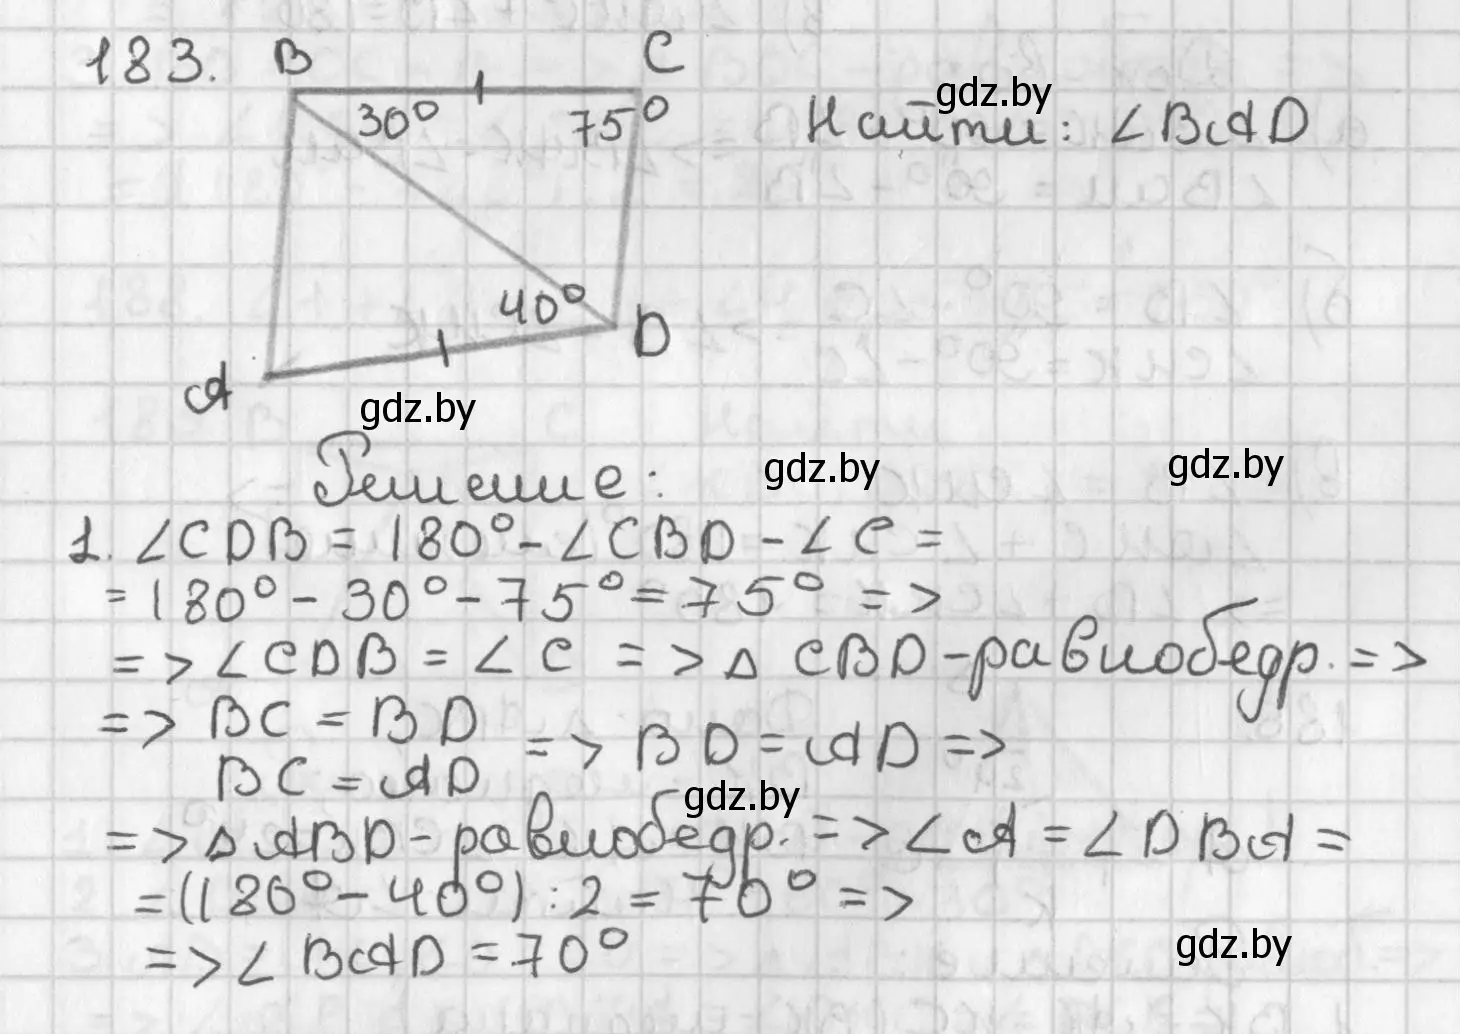 183. B C
30° 75°
gdz.by
Найти: ∠BAD
40°
D
A
gdz.by
Решение:
gdz.by gdz.by
1. ∠CDB = 180° - ∠CBD - ∠C =
= 180° - 30° - 75° = 75° =>
=> ∠CDB = ∠C => △ CBD - равнобедр. =>
=> BC = BD
BC = AD => BD = AD =>
gdz.by
=> △ ABD - равнобедр. => ∠A = ∠DBA =
= (180° - 40°) : 2 = 70° =>
=> ∠BAD = 70°
gdz.by